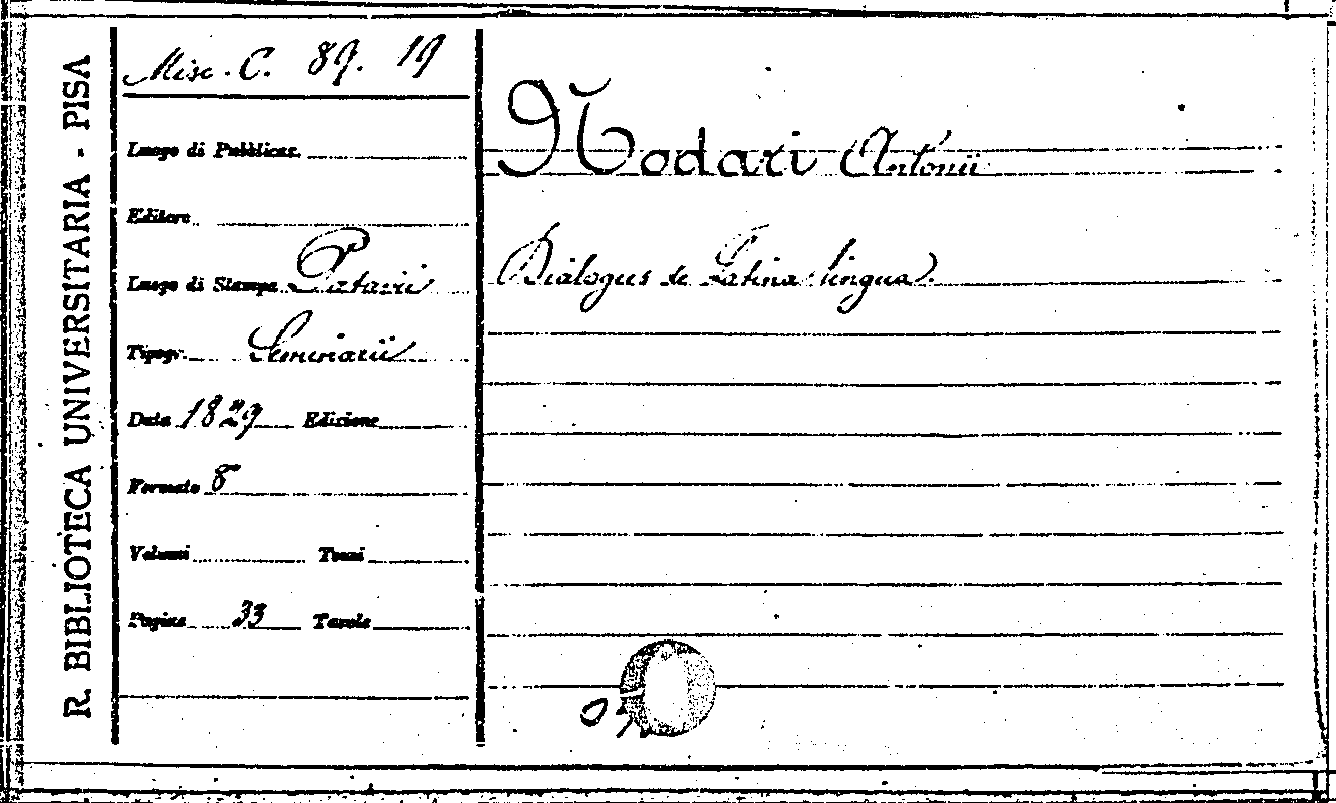 R. BIBLIOTECA UNIVERSITARIA - PISA
Misc. C. 89. 19
Luogo di Pubblicaz.
Editore
Luogo di Stampa Patavii
Tipogr. Seminarii
Data 1829 Edizione
Formato 8
Volumi Tomi
Pagine 33 Tavole
Nodari Antonii
Dialogus de Latina lingua.